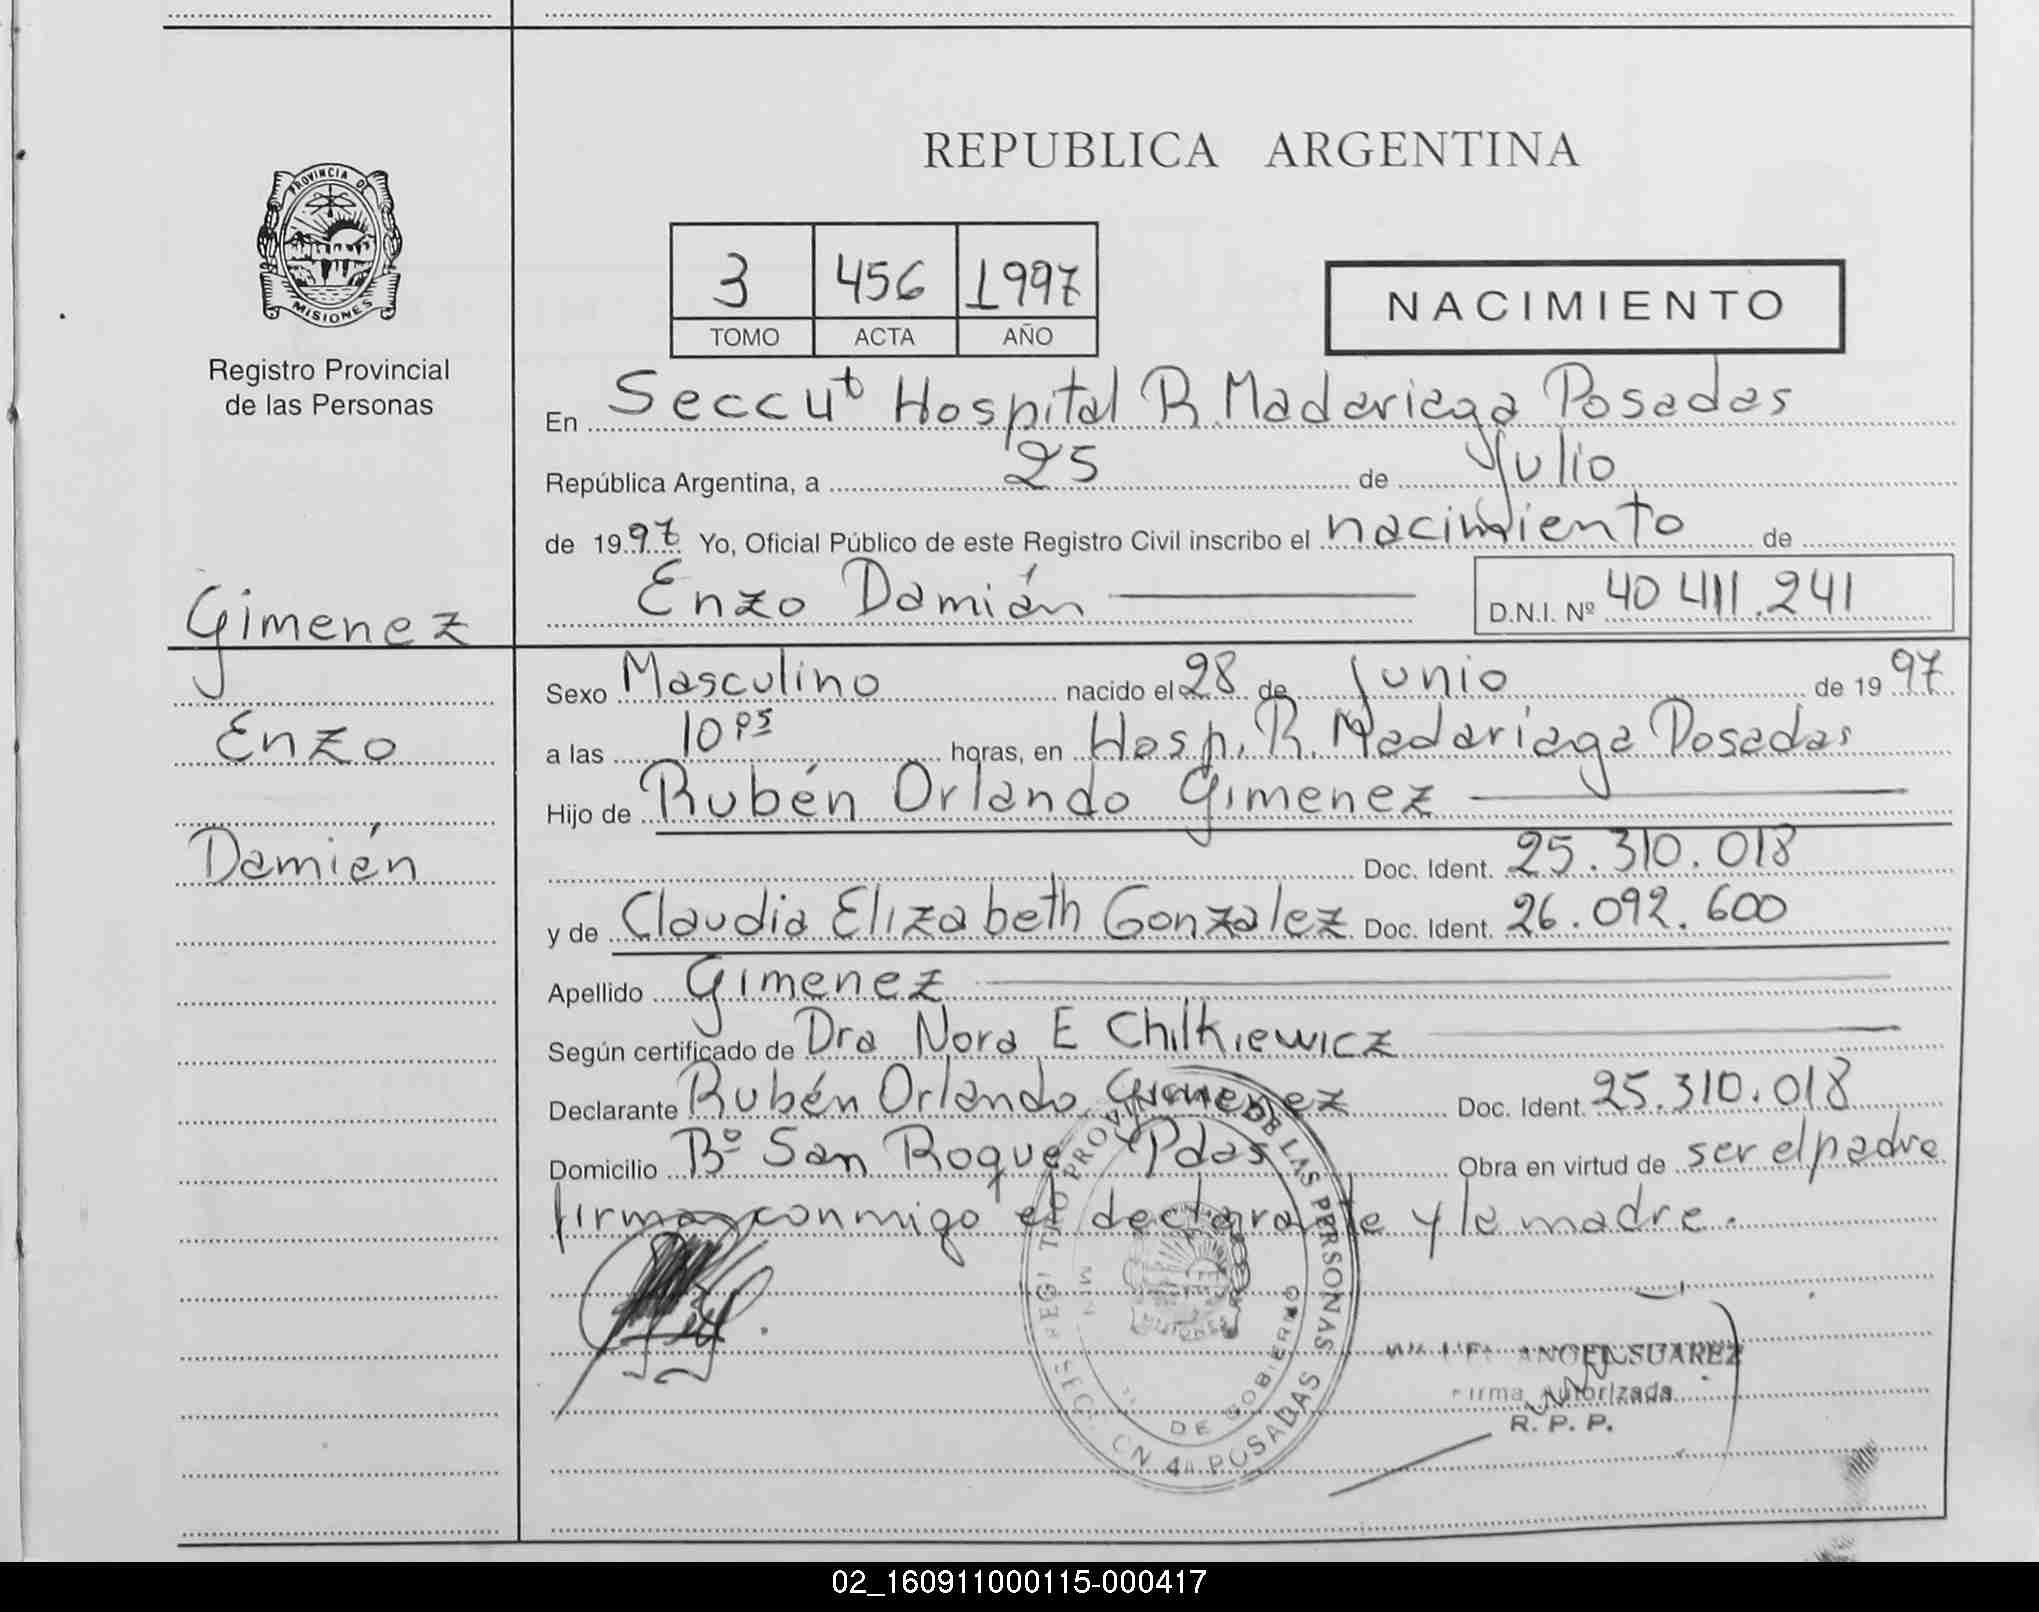 PROVINCIA DE
MISIONES
Registro Provincial
de las Personas
REPUBLICA ARGENTINA
3 456 1997
TOMO ACTA AÑO
NACIMIENTO
En Secc 4ta Hospital R. Madariaga Posadas
República Argentina, a 25 de Julio
de 1997 Yo, Oficial Público de este Registro Civil inscribo el nacimiento de
Enzo Damián D.N.I. Nº 40 411.241
Gimenez
Enzo
Damián
Sexo Masculino nacido el 28 de Junio de 1997
a las 10 horas, en Hosp. R. Madariaga Posadas
Hijo de Rubén Orlando Gimenez
Doc. Ident. 25.310.018
y de Claudia Elizabeth Gonzalez Doc. Ident. 26.092.600
Apellido Gimenez
Según certificado de Dra Nora E Chilkiewicz
Declarante Rubén Orlando Gimenez Doc. Ident. 25.310.018
Domicilio Bº San Roque Pdas Obra en virtud de ser el padre
firman conmigo el declarante y la madre.
DE LAS PERSONAS
DE GOBIERNO
POSADAS
ANGEL SUAREZ
Firma Autorizada
R. P. P.
02_160911000115-000417